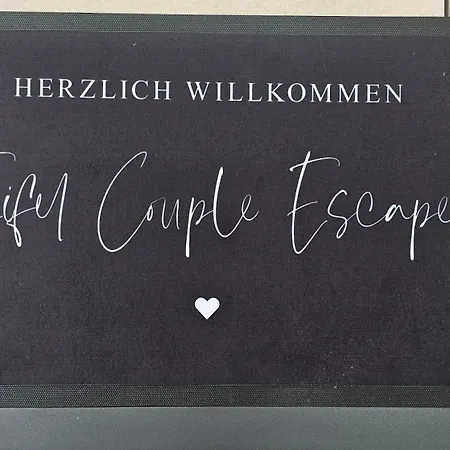 HERZLICH WILLKOMMEN
Eifel Couple Escape